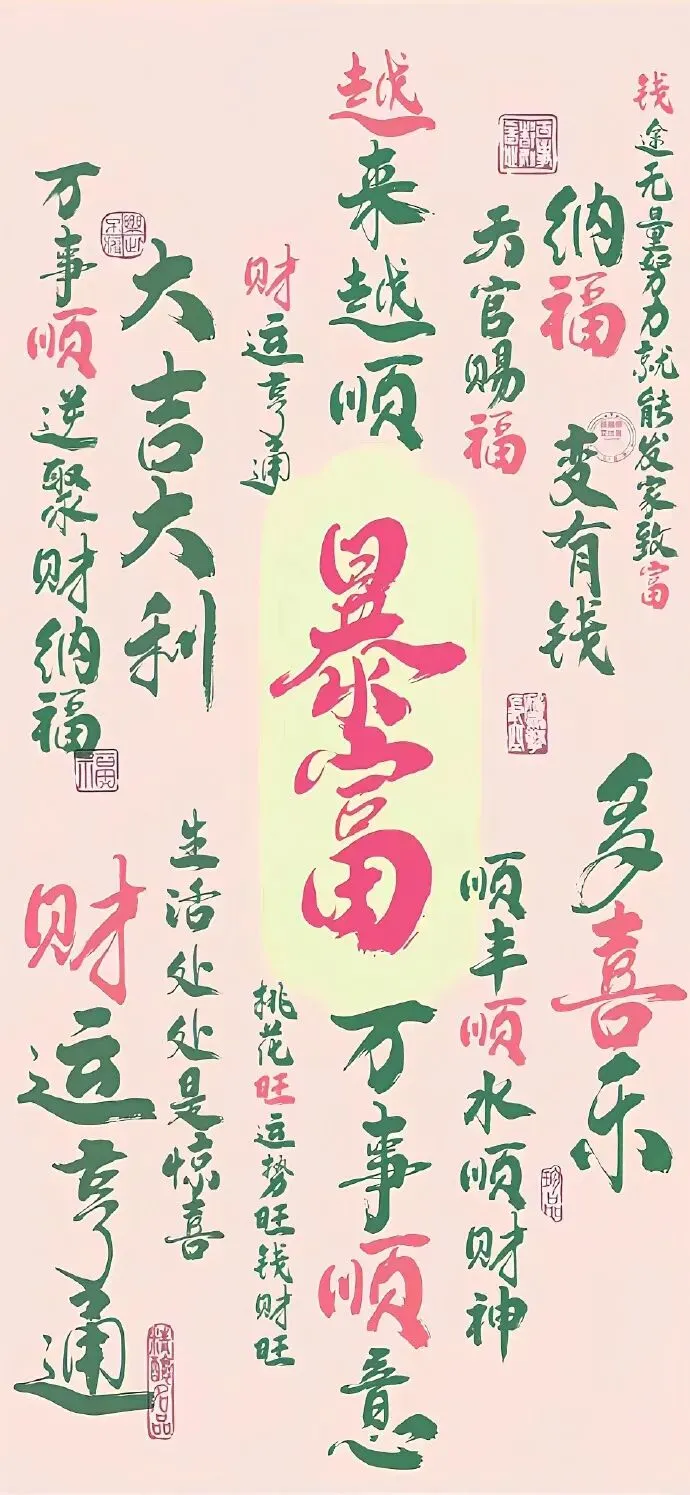 钱途无量努力就能发家致富
纳福
变有钱
多喜乐
天官赐福
顺丰顺水顺财神
越来越顺
暴富
万事顺意
财运亨通
挑花旺运势旺钱财旺
大吉大利
生活处处是惊喜
万事顺逆聚财纳福
福
财运亨通
珍品
精酿名品